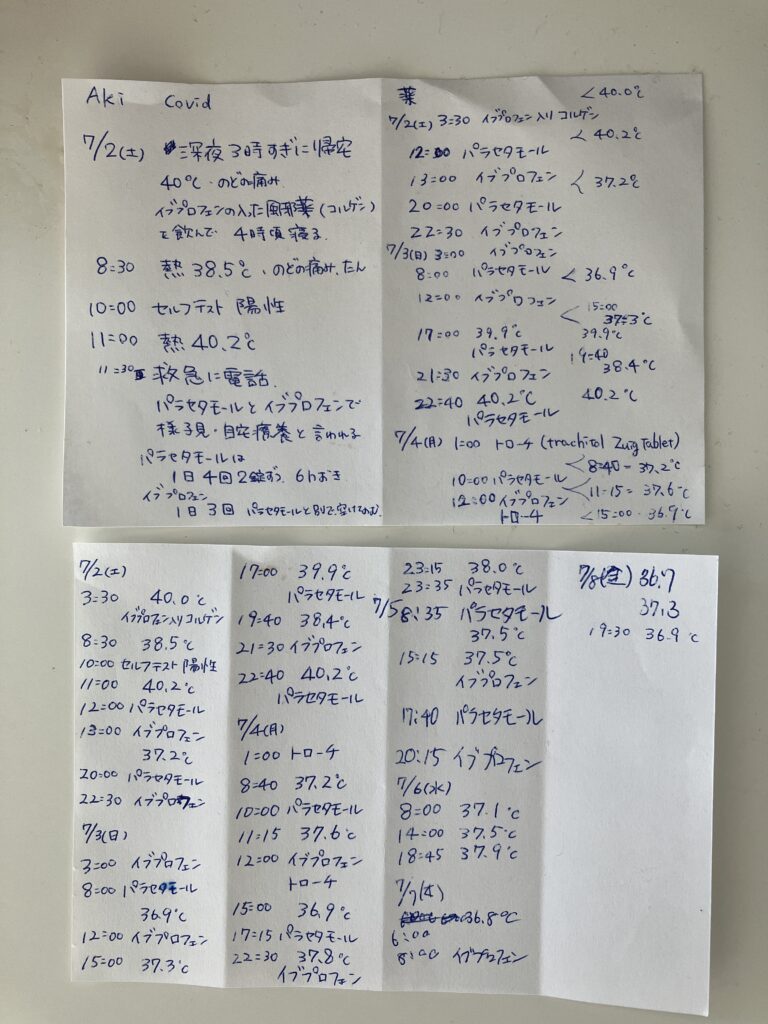 Aki Covid
7/2(土) 深夜3時すぎに帰宅
40℃・のどの痛み
イブプロフェンの入った風邪薬(コルゲン)
を飲んで 4時頃寝る.
8:30 熱 38.5℃、のどの痛み、たん
10:00 セルフテスト 陽性
11:00 熱 40.2℃
11:30 救急に電話.
パラセタモールとイブプロフェンで
様子見・自宅療養と言われる
パラセタモールは
1日4回2錠ずつ. 6hおき
イブプロフェン
1日3回 パラセタモールと別で空けてのむ.
薬 <40.0℃
7/2(土) 3:30 イブプロフェン入りコルゲン
<40.2℃
12:00 パラセタモール
13:00 イブプロフェン <37.2℃
20:00 パラセタモール
22:30 イブプロフェン
7/3(日) 3:00 イブプロフェン
8:00 パラセタモール <36.9℃
12:00 イブプロフェン
<15:00
37.3℃
17:00 39.9℃ 39.9℃
パラセタモール 19:40
38.4℃
21:30 イブプロフェン
22:40 40.2℃ 40.2℃
パラセタモール
7/4(月) 1:00 トローチ (trachitol Zuig Tablet)
<8:40- 37.2℃
10:00 パラセタモール
<11:15= 37.6℃
12:00 イブプロフェン
トローチ <15:00・36.9℃
7/2(土)
3:30 40.0℃
イブプロフェン入りコルゲン
8:30 38.5℃
10:00 セルフテスト 陽性
11:00 40.2℃
12:00 パラセタモール
13:00 イブプロフェン
37.2℃
20:00 パラセタモール
22:30 イブプロフェン
7/3(日)
3:00 イブプロフェン
8:00 パラセタモール
36.9℃
12:00 イブプロフェン
15:00 37.3℃
17:00 39.9℃
パラセタモール
19:40 38.4℃
21:30 イブプロフェン
22:40 40.2℃
パラセタモール
7/4(月)
1:00 トローチ
8:40 37.2℃
10:00 パラセタモール
11:15 37.6℃
12:00 イブプロフェン
トローチ
15:00 36.9℃
17:15 パラセタモール
22:30 37.8℃
イブプロフェン
23:15 38.0℃
23:35 パラセタモール
7/5 8:35 パラセタモール
37.5℃
15:15 37.5℃
イブプロフェン
17:40 パラセタモール
20:15 イブプロフェン
7/6(水)
8:00 37.1℃
14:00 37.5℃
18:45 37.9℃
7/7(木)
36.8℃
6:00
8:00 イブプロフェン
7/8(金) 36.7
37.3
19:30 36.9℃